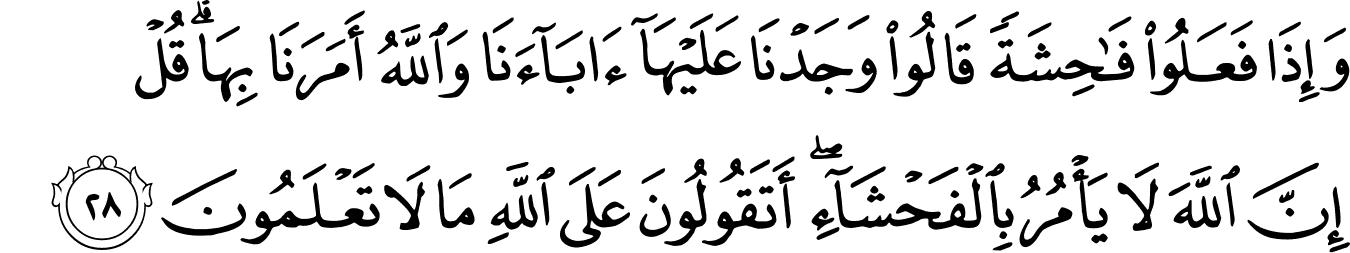 وَإِذَا فَعَلُوا۟ فَـٰحِشَةً قَالُوا۟ وَجَدْنَا عَلَيْهَآ ءَابَآءَنَا وَٱللَّهُ أَمَرَنَا بِهَا ۗ قُلْ
إِنَّ ٱللَّهَ لَا يَأْمُرُ بِٱلْفَحْشَآءِ ۖ أَتَقُولُونَ عَلَى ٱللَّهِ مَا لَا تَعْلَمُونَ ٢٨